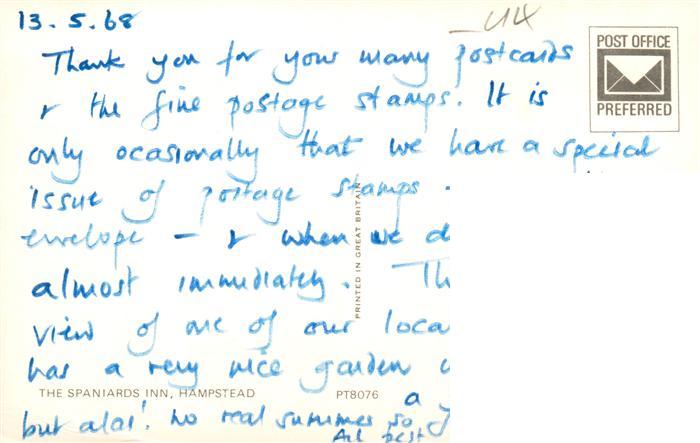 13.5.68
U4
POST OFFICE
PREFERRED
Thank you for your many postcards
& the fine postage stamps. It is
only ocasionally that we have a special
issue of postage stamps -
envelope - & when we d
almost immediately. Th
view of one of our loca
has a very nice garden
but alas! no real summer so
a
All best
PRINTED IN GREAT BRITAIN
THE SPANIARDS INN, HAMPSTEAD PT8076